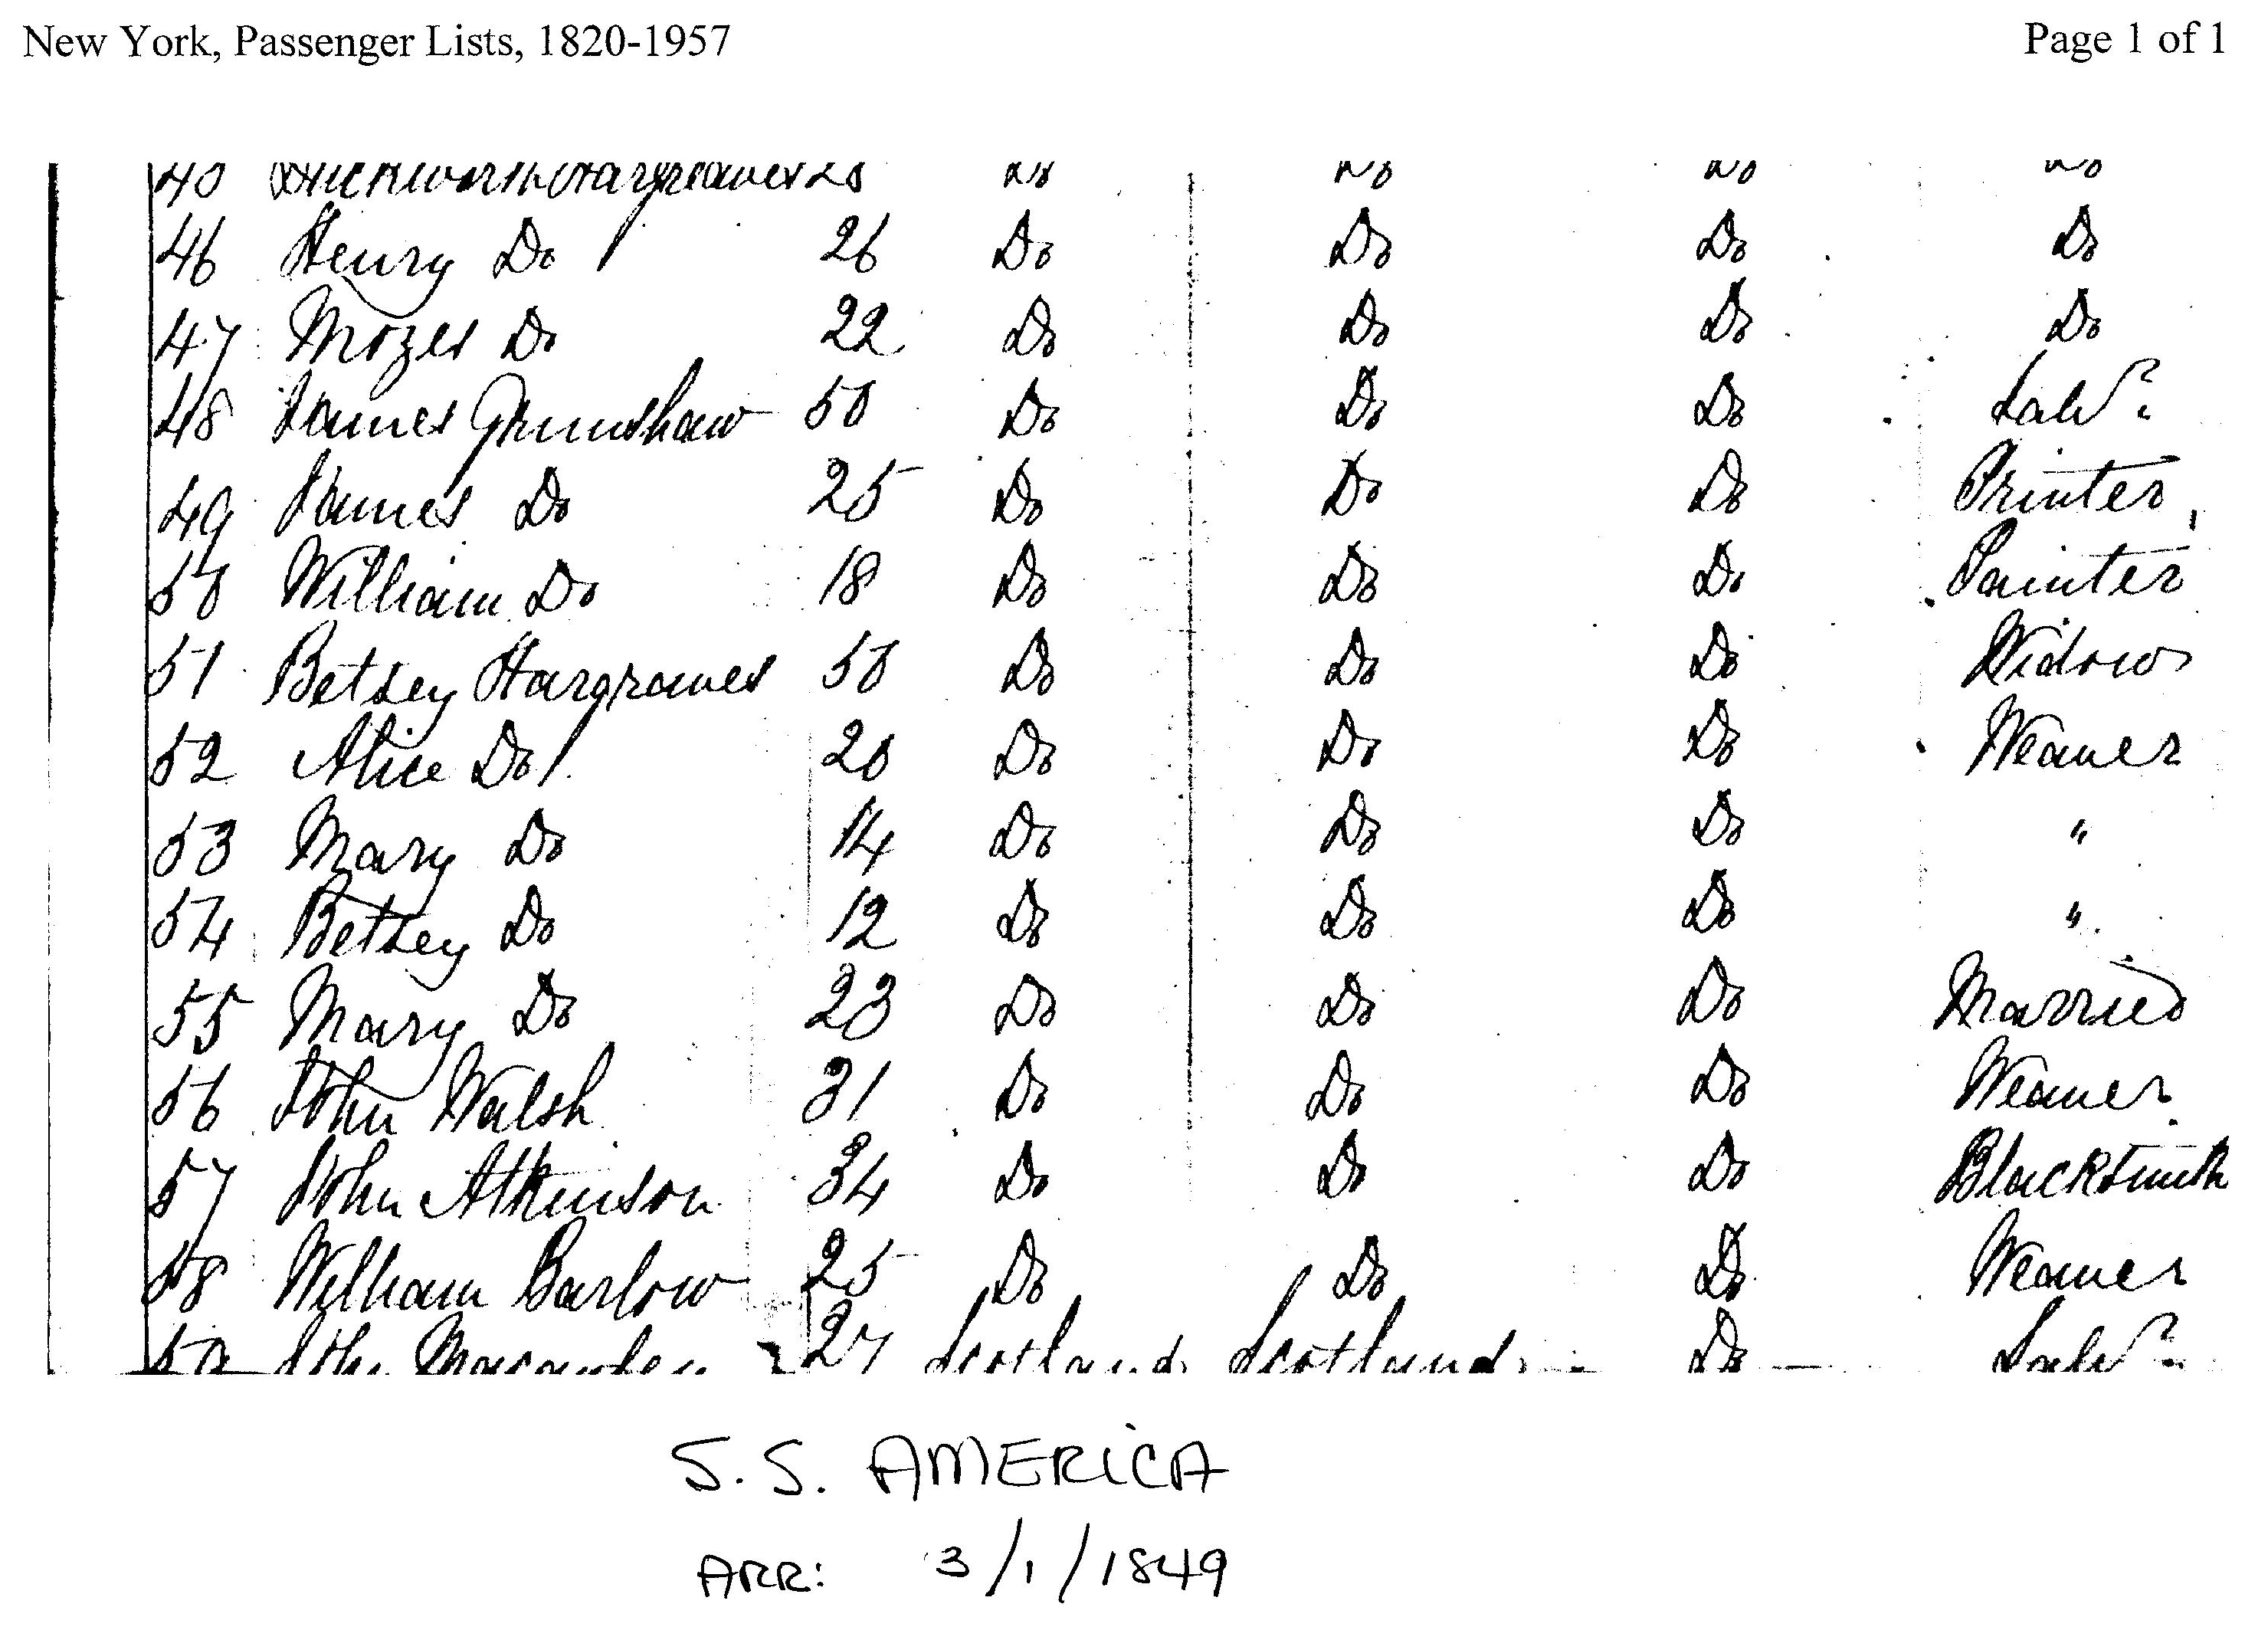 New York, Passenger Lists, 1820-1957 Page 1 of 1
Hargreaves
46 Henry Do 26 Do Do Do Do
47 Mozes Do 22 Do Do Do Do
48 James Grimshaw 50 Do Do Do Labr
49 James Do 25 Do Do Do Printer
50 William Do 18 Do Do Do Painter
51 Betsey Hargraves 50 Do Do Do Widow
52 Alice Do 20 Do Do Do Weaver
53 Mary Do 14 Do Do Do "
54 Betsey Do 12 Do Do Do "
55 Mary Do 23 Do Do Do Married
56 John Walsh 31 Do Do Do Weaver
57 John Atkinson 34 Do Do Do Blacksmith
58 William Barlow 25 Do Do Do Weaver
59 John 27 Scotland Scotland Do Labr
S.S. AMERICA
ARR: 3/1/1849